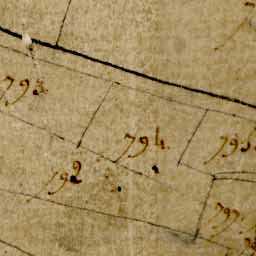 793.
794.
795.
792
797.